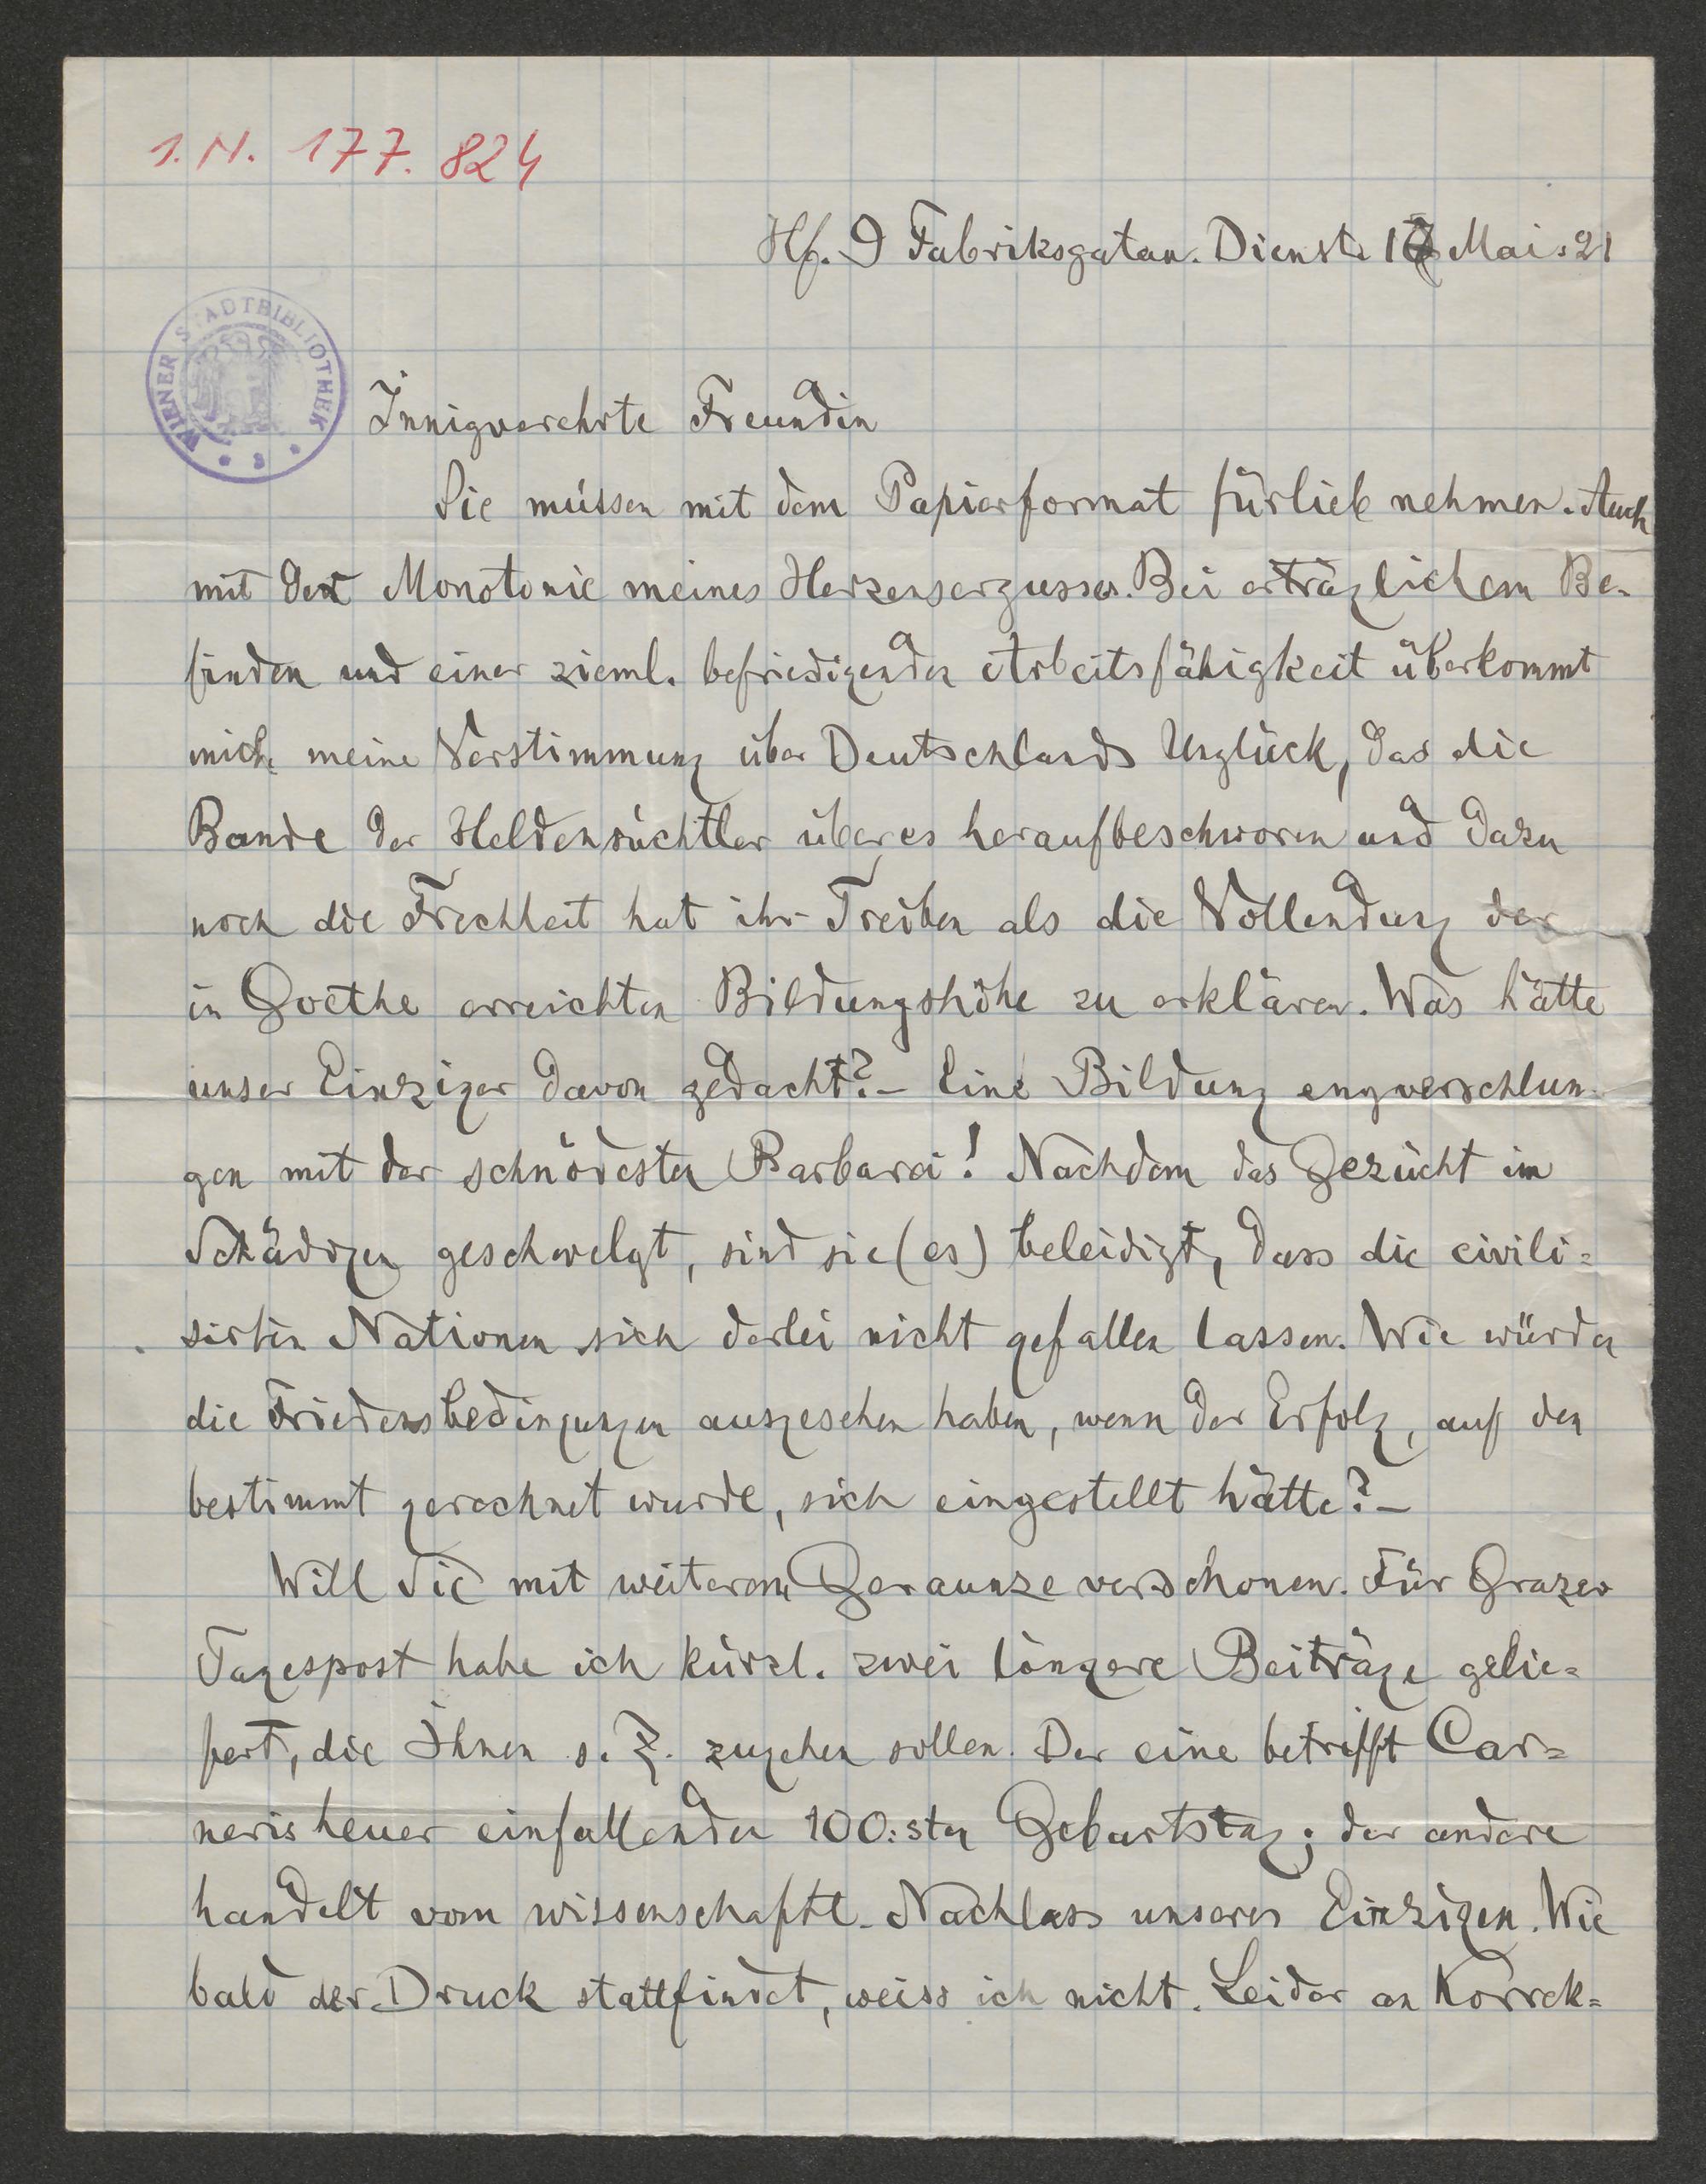 I.N. 177.824
Hf. 9 Fabriksgatan. Dienst. 17 Mai. 21
WIENER STADTBIBLIOTHEK
Innigverehrte Freundin
Sie müssen mit dem Papierformat fürlieb nehmen. Auch
mit der Monotonie meines Herzensergusses. Bei erträglichem Be-
finden und einer zieml. befriedigenden Arbeitsfähigkeit überkommt
mich meine Verstimmung über Deutschlands Unglück, das die
Bande der Heldensüchtler über es heraufbeschworen und dazu
noch die Frechheit hat ihr Treiben als die Vollendung der
in Goethe erreichten Bildungshöhe zu erklären. Was hätte
unser Einziger davon gedacht? – Eine Bildung engverschlun-
gen mit der schnödesten Barbarei! Nachdem das Gezücht im
Schädigen geschwelgt, sind sie (es) beleidigt, dass die civili=
sirten Nationen sich derlei nicht gefallen lassen. Wie würden
die Friedensbedingungen ausgesehen haben, wenn der Erfolg, auf den
bestimmt gerechnet wurde, sich eingestellt hätte? –
Will Sie mit weiterem Geraunze verschonen. Für Grazer
Tagespost habe ich kürzl. zwei längere Beiträge gelie=
fert, die Ihnen s. Z. zugehen sollen. Der eine betrifft Car=
neris heuer einfallenden 100:sten Geburtstag; der andere
handelt vom wissenschaftl. Nachlass unseres Einzigen. Wie
bald der Druck stattfindet, weiss ich nicht. Leider an Korrek=